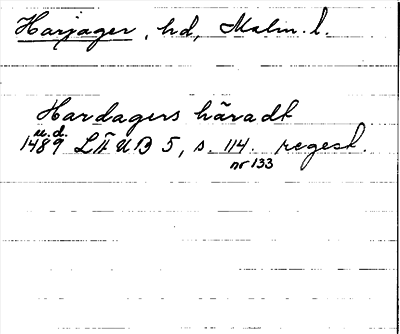 Harjager, hd, Malm. l.
Hardagers häradt
u.d.
1489 LÄUB 5, s. 114. regest.
nr 133